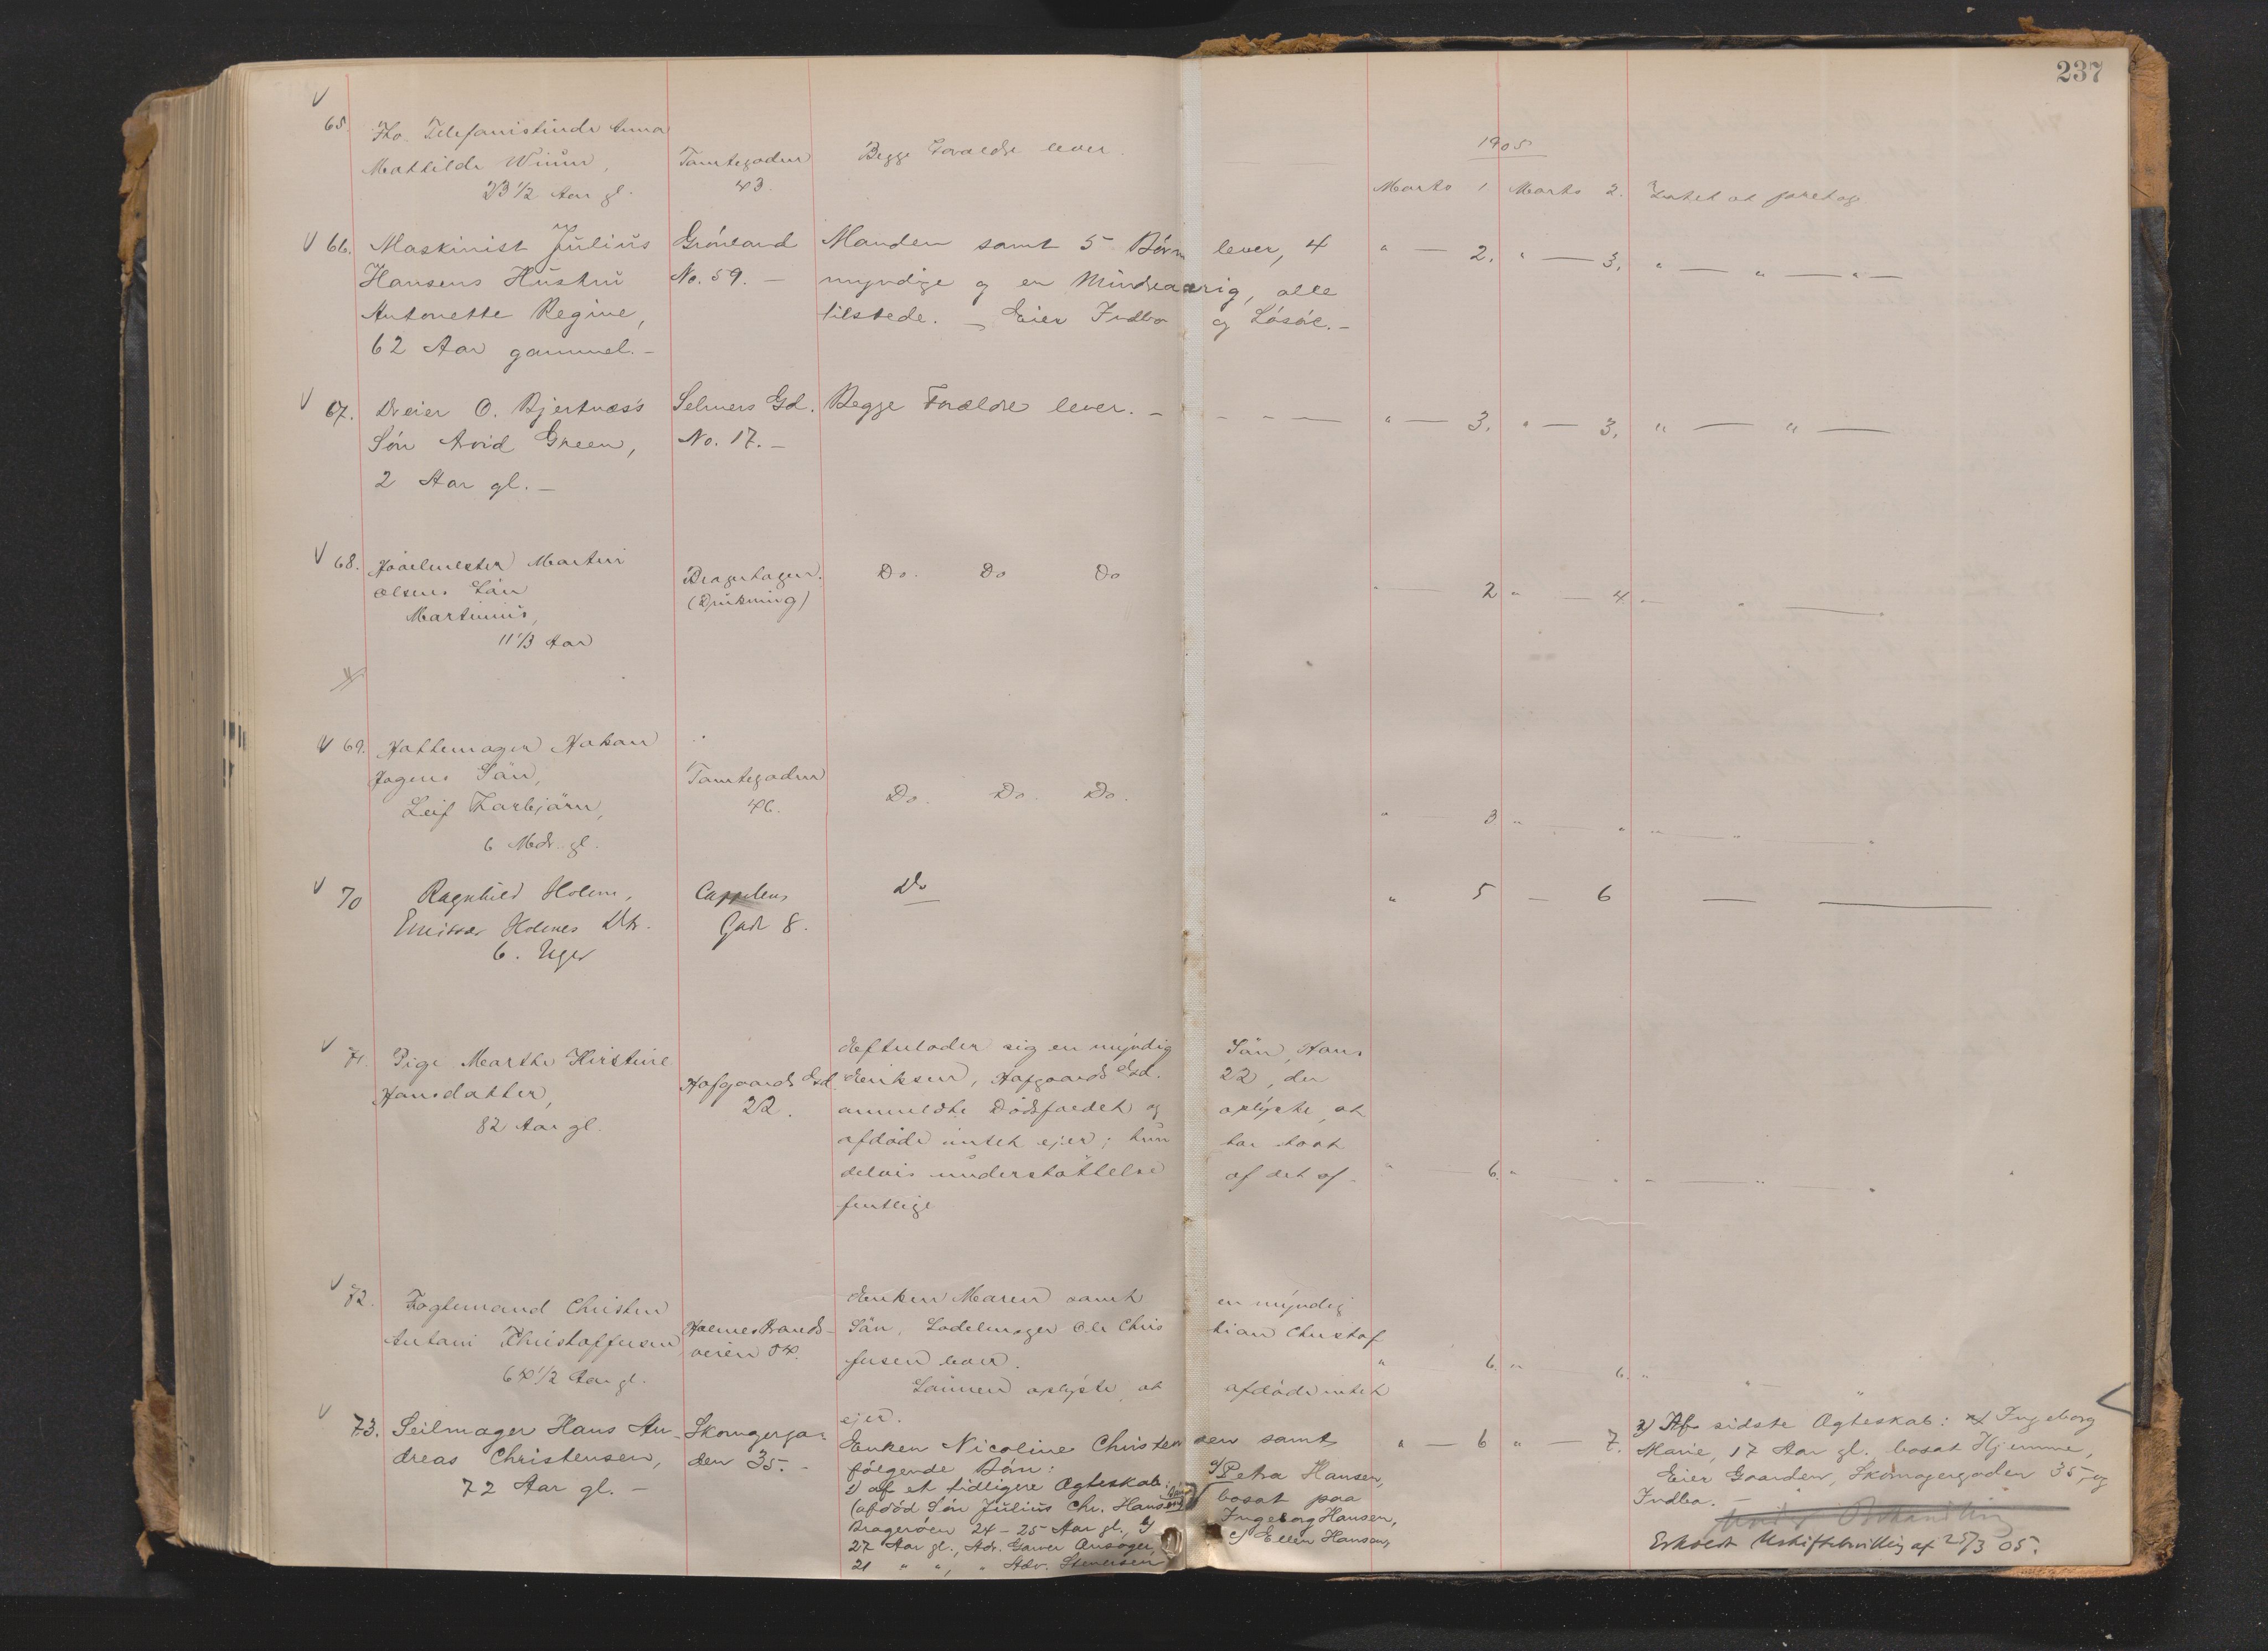 237
1905
65. Tho. Telefonistinde Anna
Mathilde Wiium,
23 1/2 Aar gl.
Tomtegaden
43.
Begge Forældre lever.
Marts 1 Marts 2. Intet at foretage
66. Maskinist Julius
Hansens Hustru
Antonette Regine,
62 Aar gammel. –
Grönland
No. 59. –
Manden samt 5 Börn lever, 4
myndige og en Mindreaarig, alle
tilstede. – Eier Indbo og Lösöre. –
" — 2. " — 3. " — " — " —
67. Dreier O. Bjertnæs's
Sön Arvid Green,
2 Aar gl. –
Selmers Gd.
No. 17. –
Begge Forældre lever. – – – —
" — 3. " — 3. " — " —
68. Martin
Olsens Sön
Martinius,
11 1/3 Aar
Bragerhagen.
(Drukning)
Do. Do Do
" — 2 " — 4. " — " —
69. Hattemager Hakon
Sön,
Leif Thorbjörn,
6 Mdr. gl.
Tomtegaden
46.
Do. Do. Do.
" — 3 " — " " — " — "
70 Ragnhild Holm,
Emissær Holmes Dtr.
6. Uger
Cappelens
Gade 8.
Do
" 5 — 6 — —
71. Pige Marthe Kirstine
Hansdatter,
82 Aar gl.
Hofgaards Gd.
22.
Efterlader sig en myndig Sön, Hans
Eriksen, Hofgaards Gd. 22, der
anmeldte Dödsfaldet og oplyste, at
afdöde intet ejer; hun har havt
delvis understöttelse af det of-
fentlige
" — 6. " — " " — " — "
72. Fogtemand Christen
Antoni Christoffersen
64 1/2 Aar gl.
Holmestrands-
veien 54.
Enken Maren samt en myndig
Sön, Sadelmager Ole Christian Christof
fersen lever.
Sönnen oplyste, at afdöde intet
ejer.
" 6. " — 6. " " "
73. Seilmager Hans An-
dreas Christensen,
72 Aar gl. –
Skomagerga-
den 35. –
Enken Nicoline Christensen samt
fölgende Börn:
1) af et tidligere Ægteskab:
(afdöd Sön Julius Chr. Hansens Börn) a) Petra Hansen,
Brageröen 24 – 25 Aar gl., b) bosat paa
Ingeborg Hansen,
27 Aar gl., Adr. Garver Ansager, c) Ellen Hansen,
21 " ", " Adr. Stenersen
" — 6 " — 7.
2) Af sidste Ægteskab: Ingeborg
Marie, 17 Aar gl. bosat Hjemme,
Eier Gaarden, Skomagergaden 35, og
Indbo. –
Under Behandling
Erholdt Uskiftebevilling af 25/3 05.